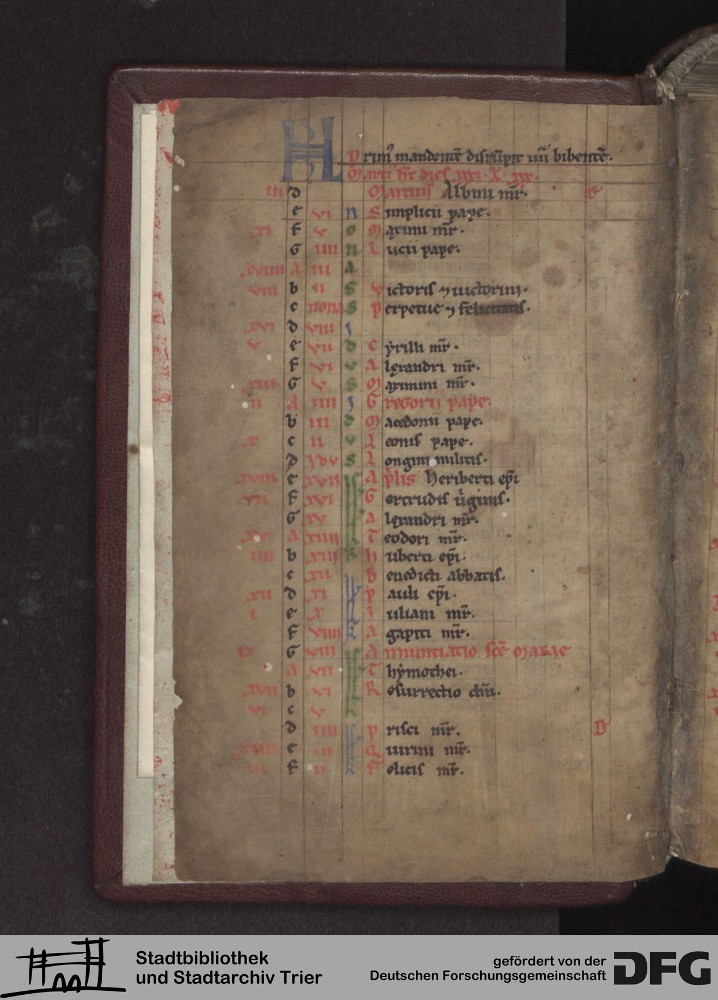 KL Prim' mandentē disrūpit iiii bibentē.
Marti' ht dies xxxi. lˣ. xxx.
iii d Martius Albini mr̄.
e vi n Simplicii pape.
xi f v o Maximi mr̄.
G iiii n Lucii pape.
xviiii A iii a
viii b ii s Victoris ⁊ uictorini.
c nonas s Perpetue ⁊ felicitatis.
xvi d viii i
v e vii d Cyrilli mr̄.
f vi v Alexandri mr̄.
xiii G v s Maximini mr̄.
ii A iiii i Gregorii pape.
b iii d Macedonii pape.
x c ii v Leonis pape.
d Idvs s Longini militis.
xviii e xvii kl Aprilis Heriberti ep̄i
vii f xvi Gertrudis uirginis.
G xv Alexandri mr̄.
xv A xiiii Teodori mr̄.
iiii b xiii k Huberti ep̄i.
c xii Benedicti abbatis.
xii d xi Pauli ep̄i.
i e x Iuliani mr̄.
f viiii k Agapiti mr̄.
ix G viii Annuntiatio scē Mariae
A vii Thymothei.
xvii b vi Resurrectio dn̄i.
vi c v
d iiii Prisci mr̄.
xiiii e iii Quirini mr̄.
iii f ii k Felicis mr̄.
D
Stadtbibliothek
und Stadtarchiv Trier
gefördert von der
Deutschen Forschungsgemeinschaft
DFG